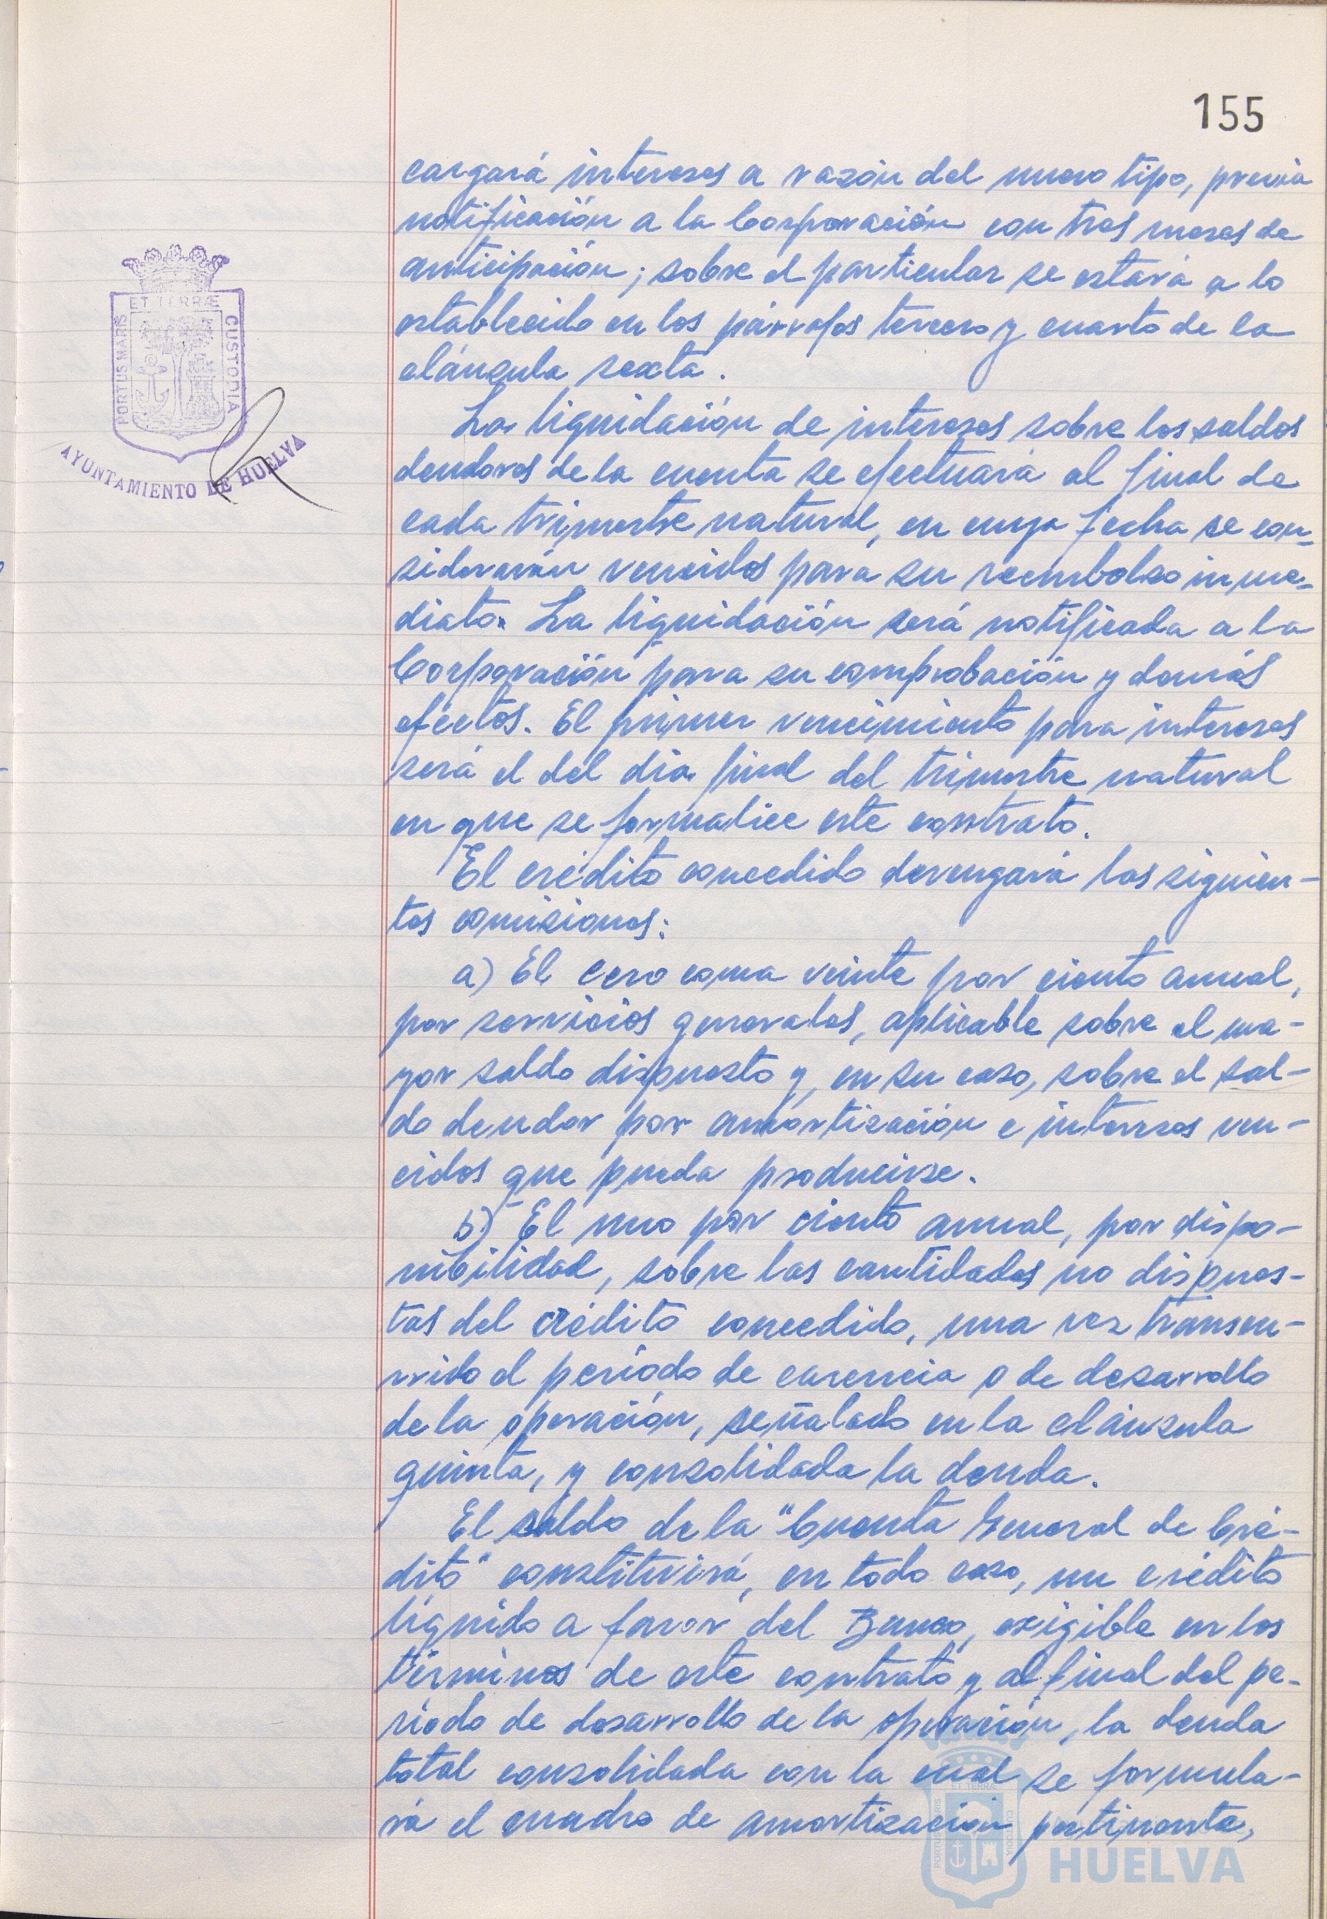 155
cargará intereses a razón del nuevo tipo, previa
notificación a la Corporación con tres meses de
anticipación; sobre el particular se estará a lo
establecido en los párrafos tercero y cuarto de la
cláusula sexta.
La liquidación de intereses sobre los saldos
deudores de la cuenta se efectuará al final de
cada trimestre natural, en cuya fecha se con-
siderarán vencidos para su reembolso inme-
diato. La liquidación será notificada a la
Corporación para su comprobación y demás
efectos. El primer vencimiento para intereses
será el del día final del trimestre natural
en que se formalice este contrato.
El crédito concedido devengará las siguien-
tes comisiones:
a) El cero coma veinte por ciento anual,
por servicios generales, aplicable sobre el ma-
yor saldo dispuesto y, en su caso, sobre el sal-
do deudor por amortización e intereses ven-
cidos que pueda producirse.
b) El uno por ciento anual, por dispo-
nibilidad, sobre las cantidades no dispues-
tas del crédito concedido, una vez transcu-
rrido el período de carencia o de desarrollo
de la operación, señalado en la cláusula
quinta, y consolidada la deuda.
El saldo de la "Cuenta General de Cré-
dito" constituirá, en todo caso, un crédito
líquido a favor del Banco, exigible en los
términos de este contrato y al final del pe-
ríodo de desarrollo de la operación, la deuda
total consolidada con la cual se formula-
rá el cuadro de amortización pertinente,
PORTUS MARIS ET TERRÆ CUSTODIA
AYUNTAMIENTO DE HUELVA
PORTUS MARIS ET TERRÆ CUSTODIA
HUELVA